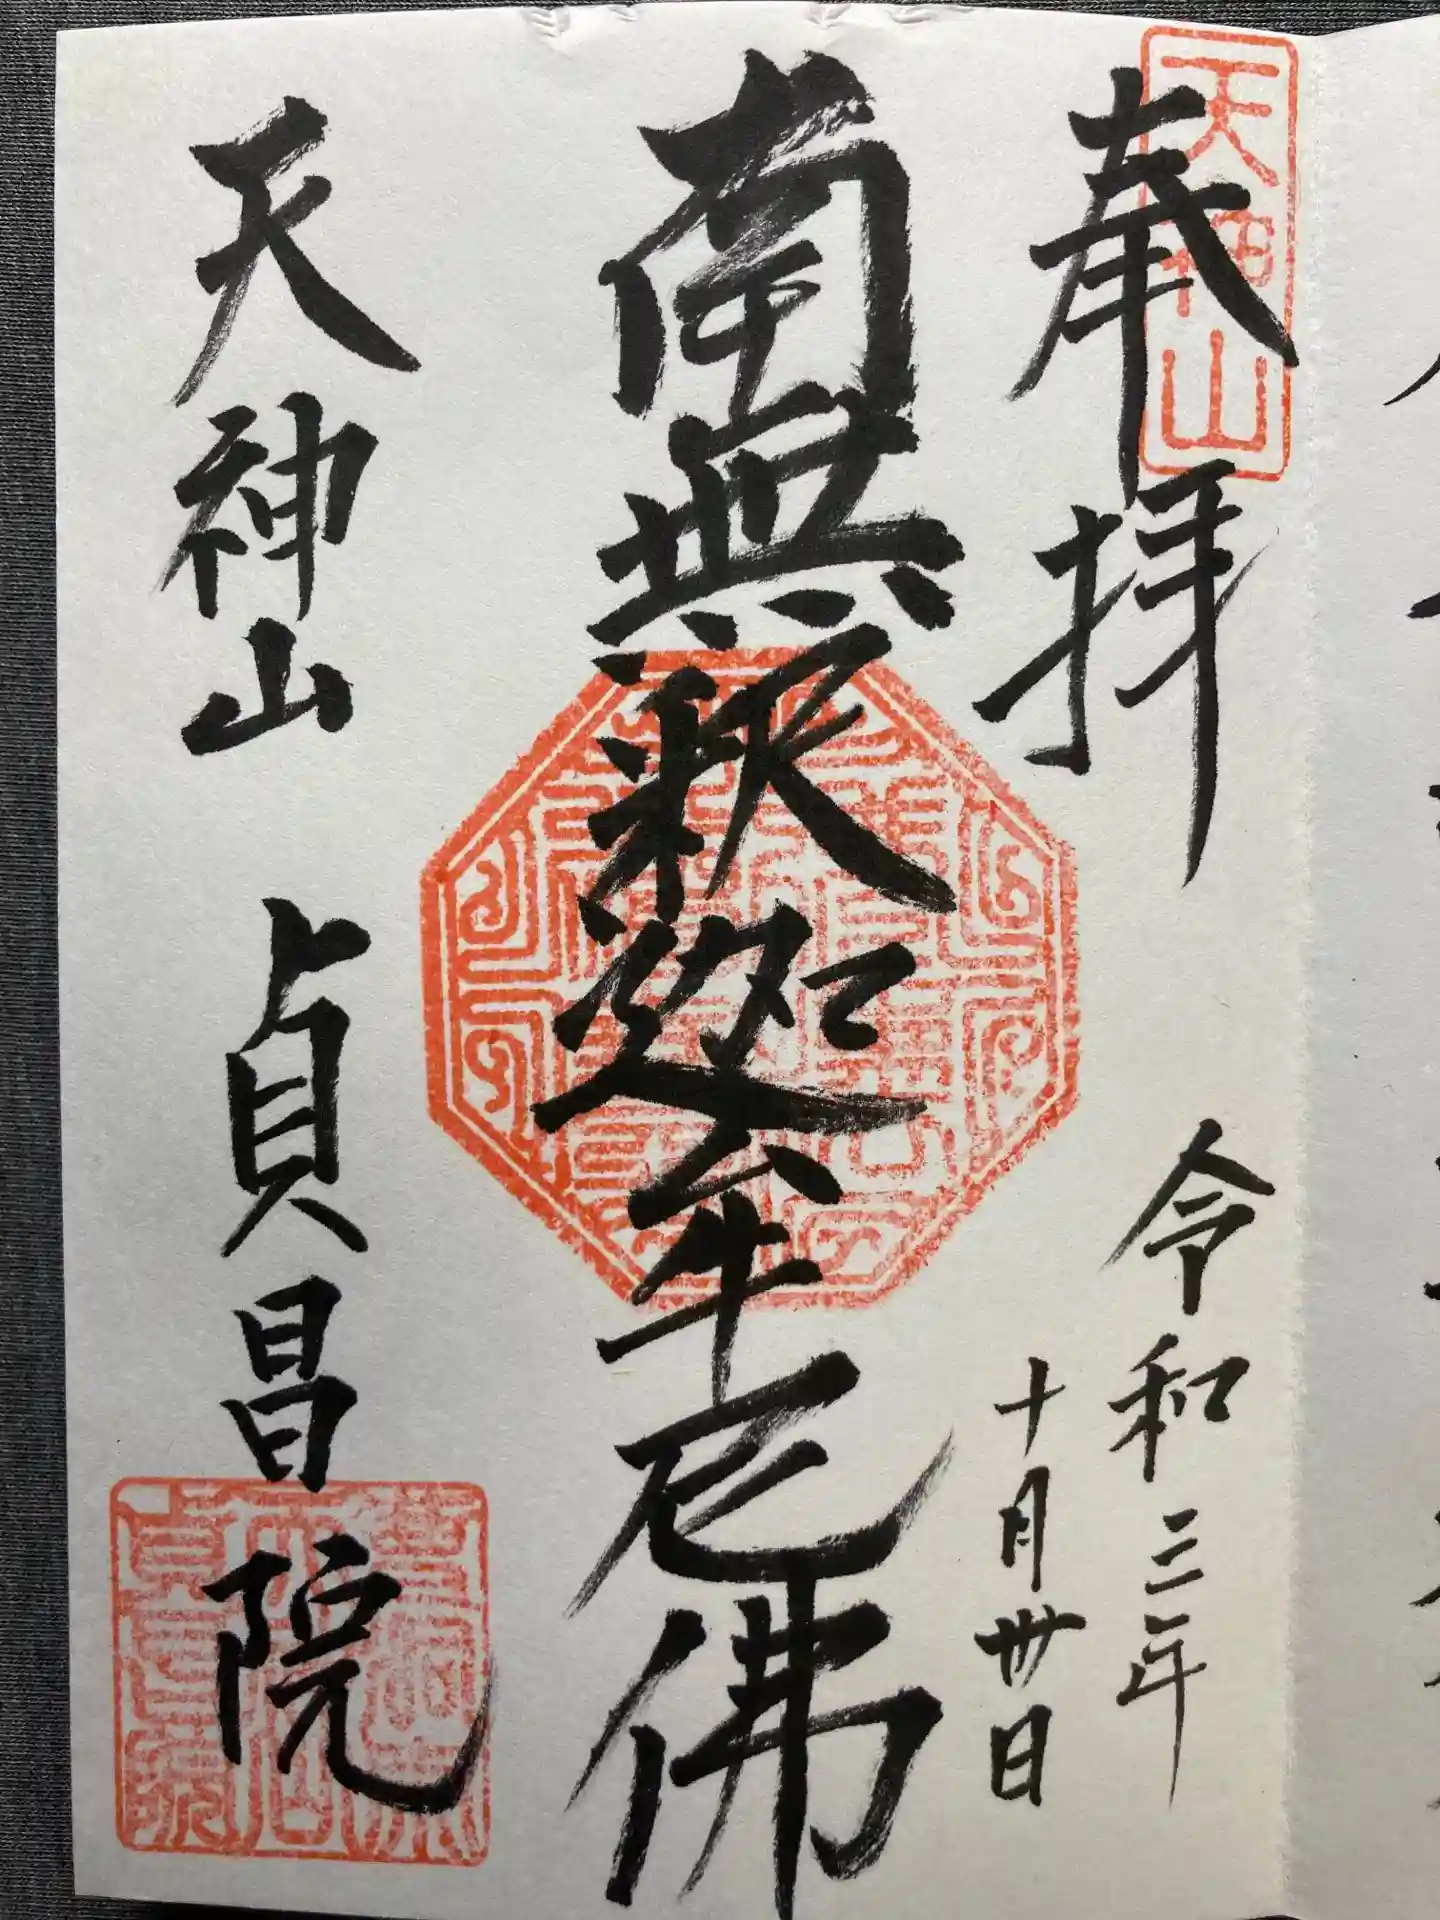 天神山
奉拝
令和三年
十月卅日
南無釈迦牟尼佛
天神山 貞昌院